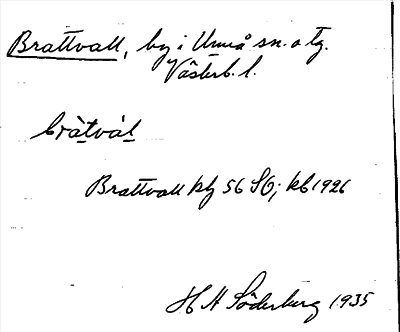 Brattvall, by i Umeå sn. o tg.
Västerb. l.
bràtvál
Brattvall kbf 56 SO; kb 1926
H H Söderberg 1935